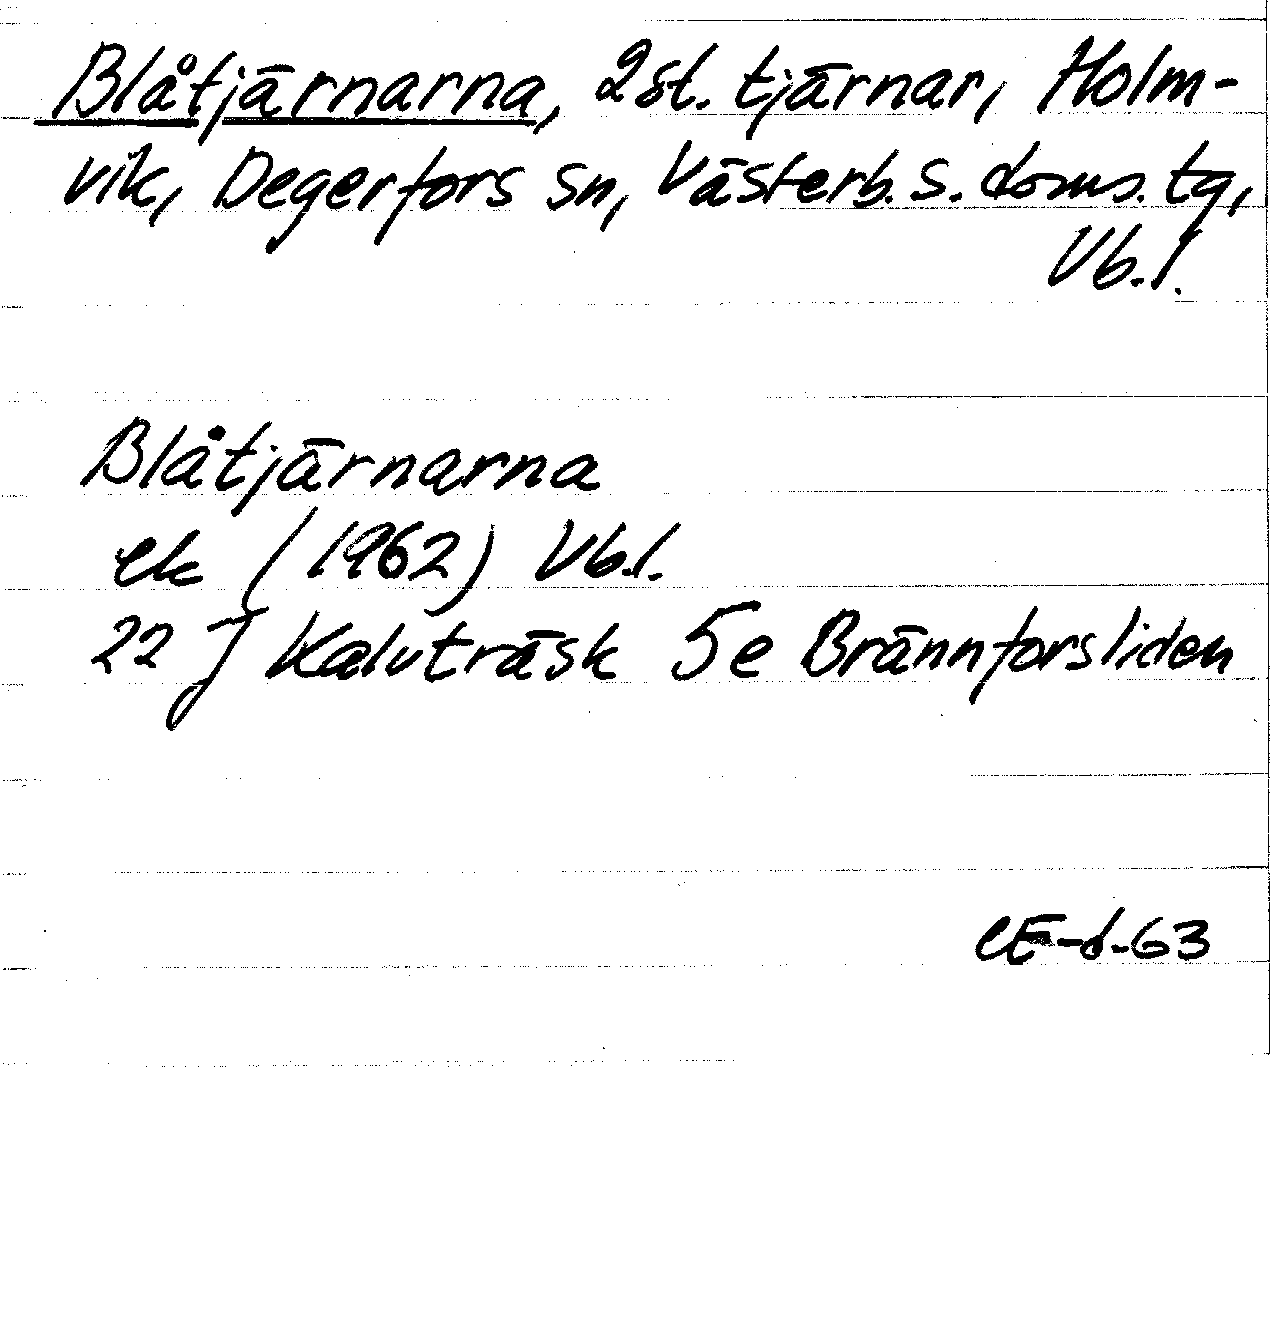 Blåtjärnarna, 2 st. tjärnar, Holm-
vik, Degerfors sn, Västerb. s. doms. tg,
Vb. l.
Blåtjärnarna
ek (1962) Vb. l.
22 J Kalvträsk 5e Brännforsliden
CE-d-63